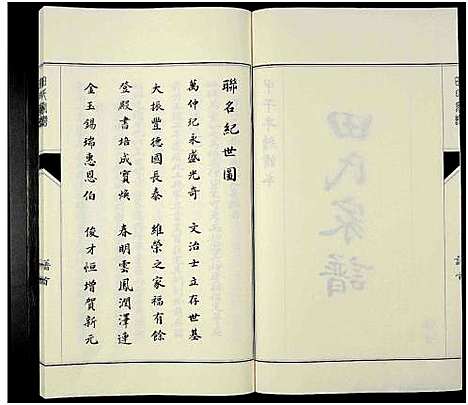 聯名紀世圖
萬仲玘永盛光奇 文治士立存世基
大振豐德國長泰 維榮之家福有餘
登殿書培成寶煥 春明雲鳳潤澤連
金玉錫瑞惠恩伯 俊才恒增賀新元
譜首
田氏家譜